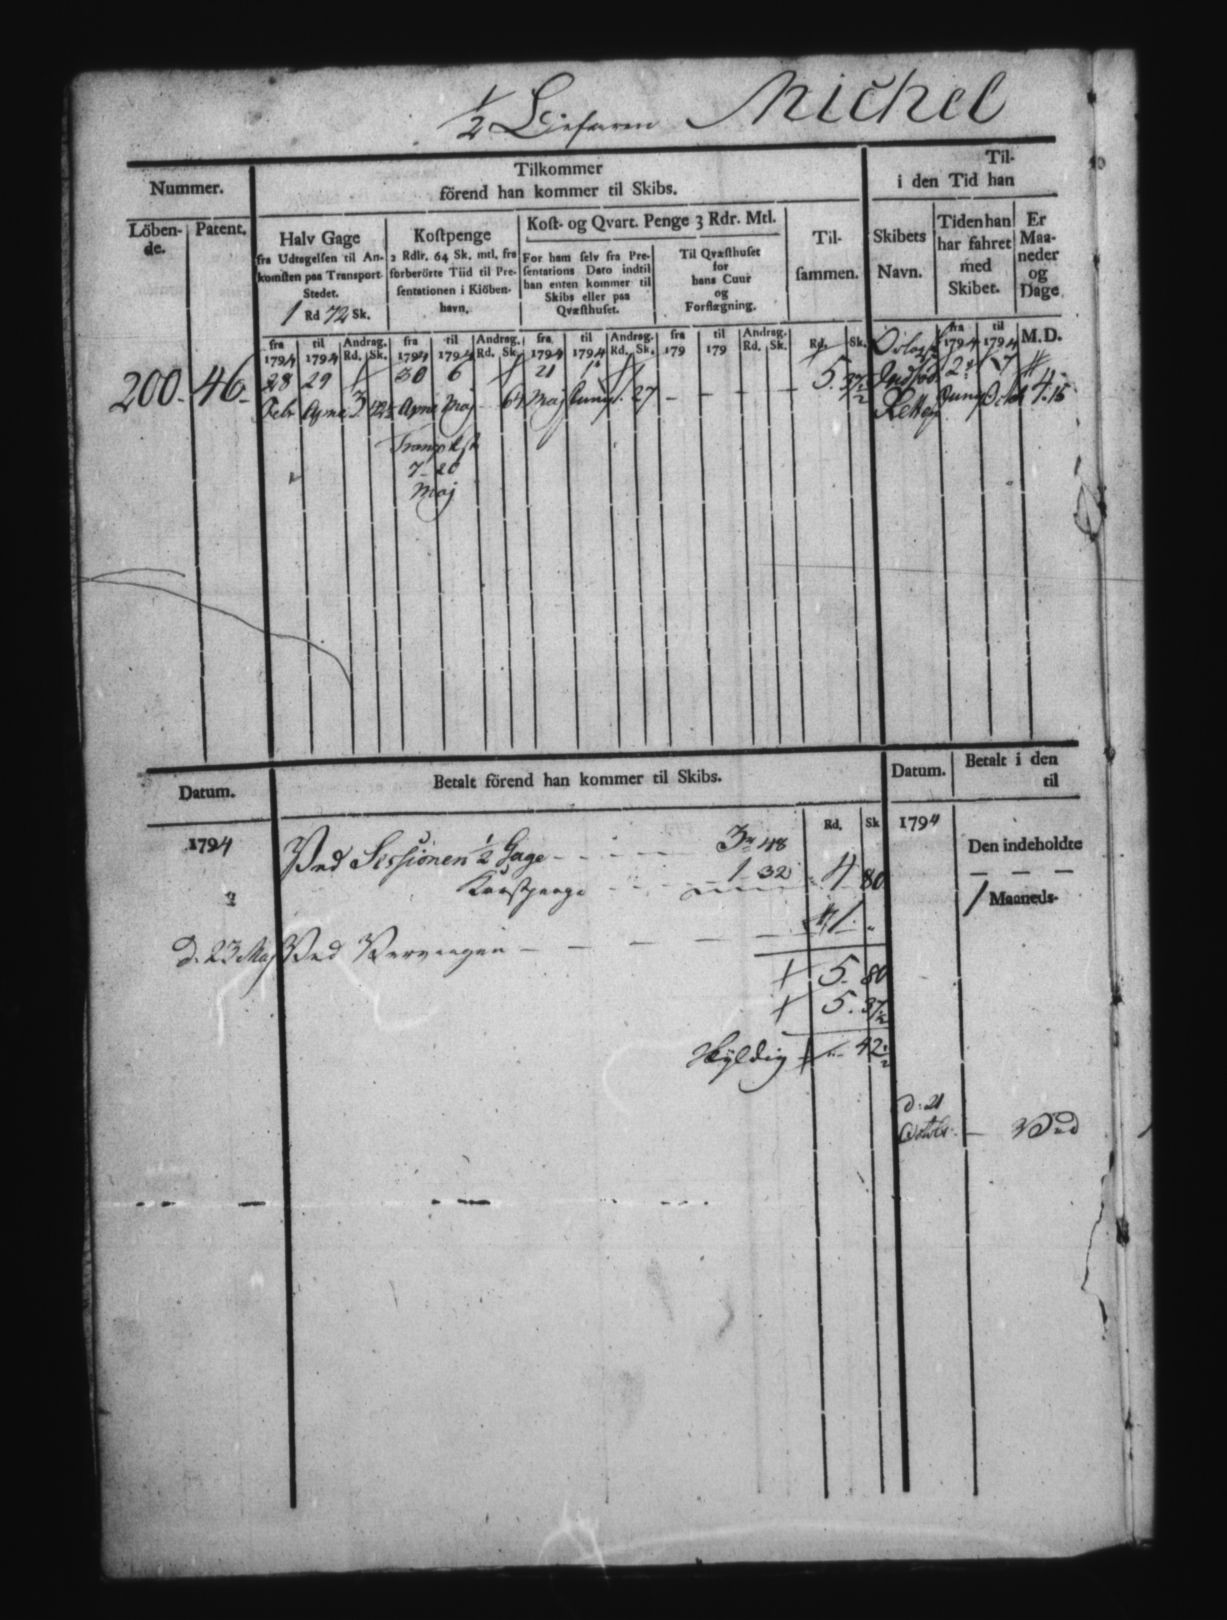 1/2 Michel
Nummer.
Tilkommer
förend han kommer til Skibs.
Til-
i den Tid han
Löben-
de.
Patent.
Halv Gage
fra Udtagelsen til An-
komsten paa Transport
Stedet.
1 Rd 72 Sk.
Kostpenge
2 Rdlr. 64 Sk. mtl. fra
forberörte Tiid til Pre-
sentationen i Kiöben-
havn.
Kost- og Qvart. Penge 3 Rdr. Mtl.
For ham selv fra Pre-
sentations Dato indtil
han enten kommer til
Skibs eller paa
Qvæsthuset.
Til Qvæsthuset
for
hans Cuur
og
Forflægning.
Til-
sammen.
Skibets
Navn.
Tiden han
har fahret
med
Skibet.
Er
Maa-
neder
og
Dage
fra 1794 til 1794 Andrag. Rd. Sk. fra 1794 til 1794 Andrag. Rd. Sk. fra 1794 til 1794 Andrag. Rd. Sk. fra 179 til 179 Andrag. Rd. Sk. Rd. Sk. fra 1794 til 1794 M. D.
200. 46. 28 29 30 6 21 5. 37 1/2 2 7
Febr 3 Maj 64 Maj 27 - - - - 4. 15
7 20
Maj
Datum.
Betalt förend han kommer til Skibs.
Datum.
Betalt i den
til
1794 Rd. Sk 1794
Ved Sessionen 1/2 Gage - - - - 3 „ 48
Den indeholdte
- - -
Kaastpenge - - - 1 32 4 80
1 Maaneds-
d. 23 Maj Ved - - - - - 1 „
5. 80
5. 37 1/2
Skyldig 42 1/2
d. 21
Octob. - Ved